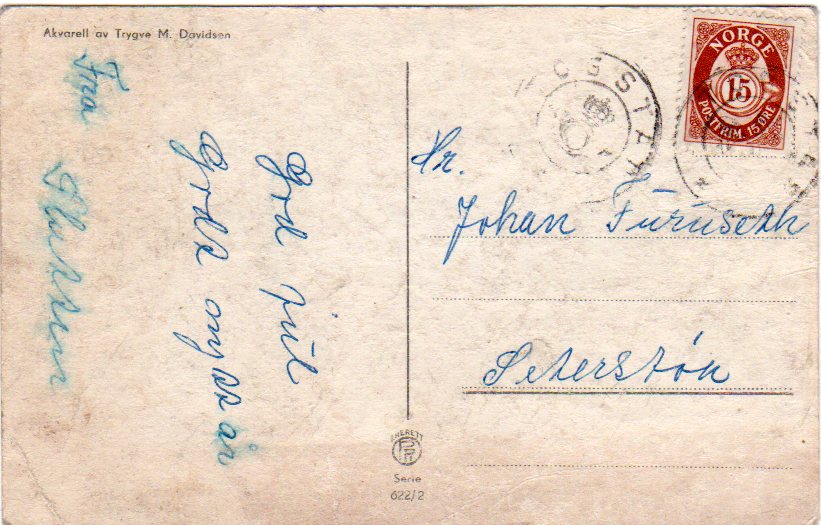 Akvarell av Trygve M. Davidsen
God jul
Godt nytt år
Fra
NORGE
15
POSTFRIM. 15 ØRE
Hr.
Johan Furuseth
Seterstøa
ENERETT
Serie
622/2